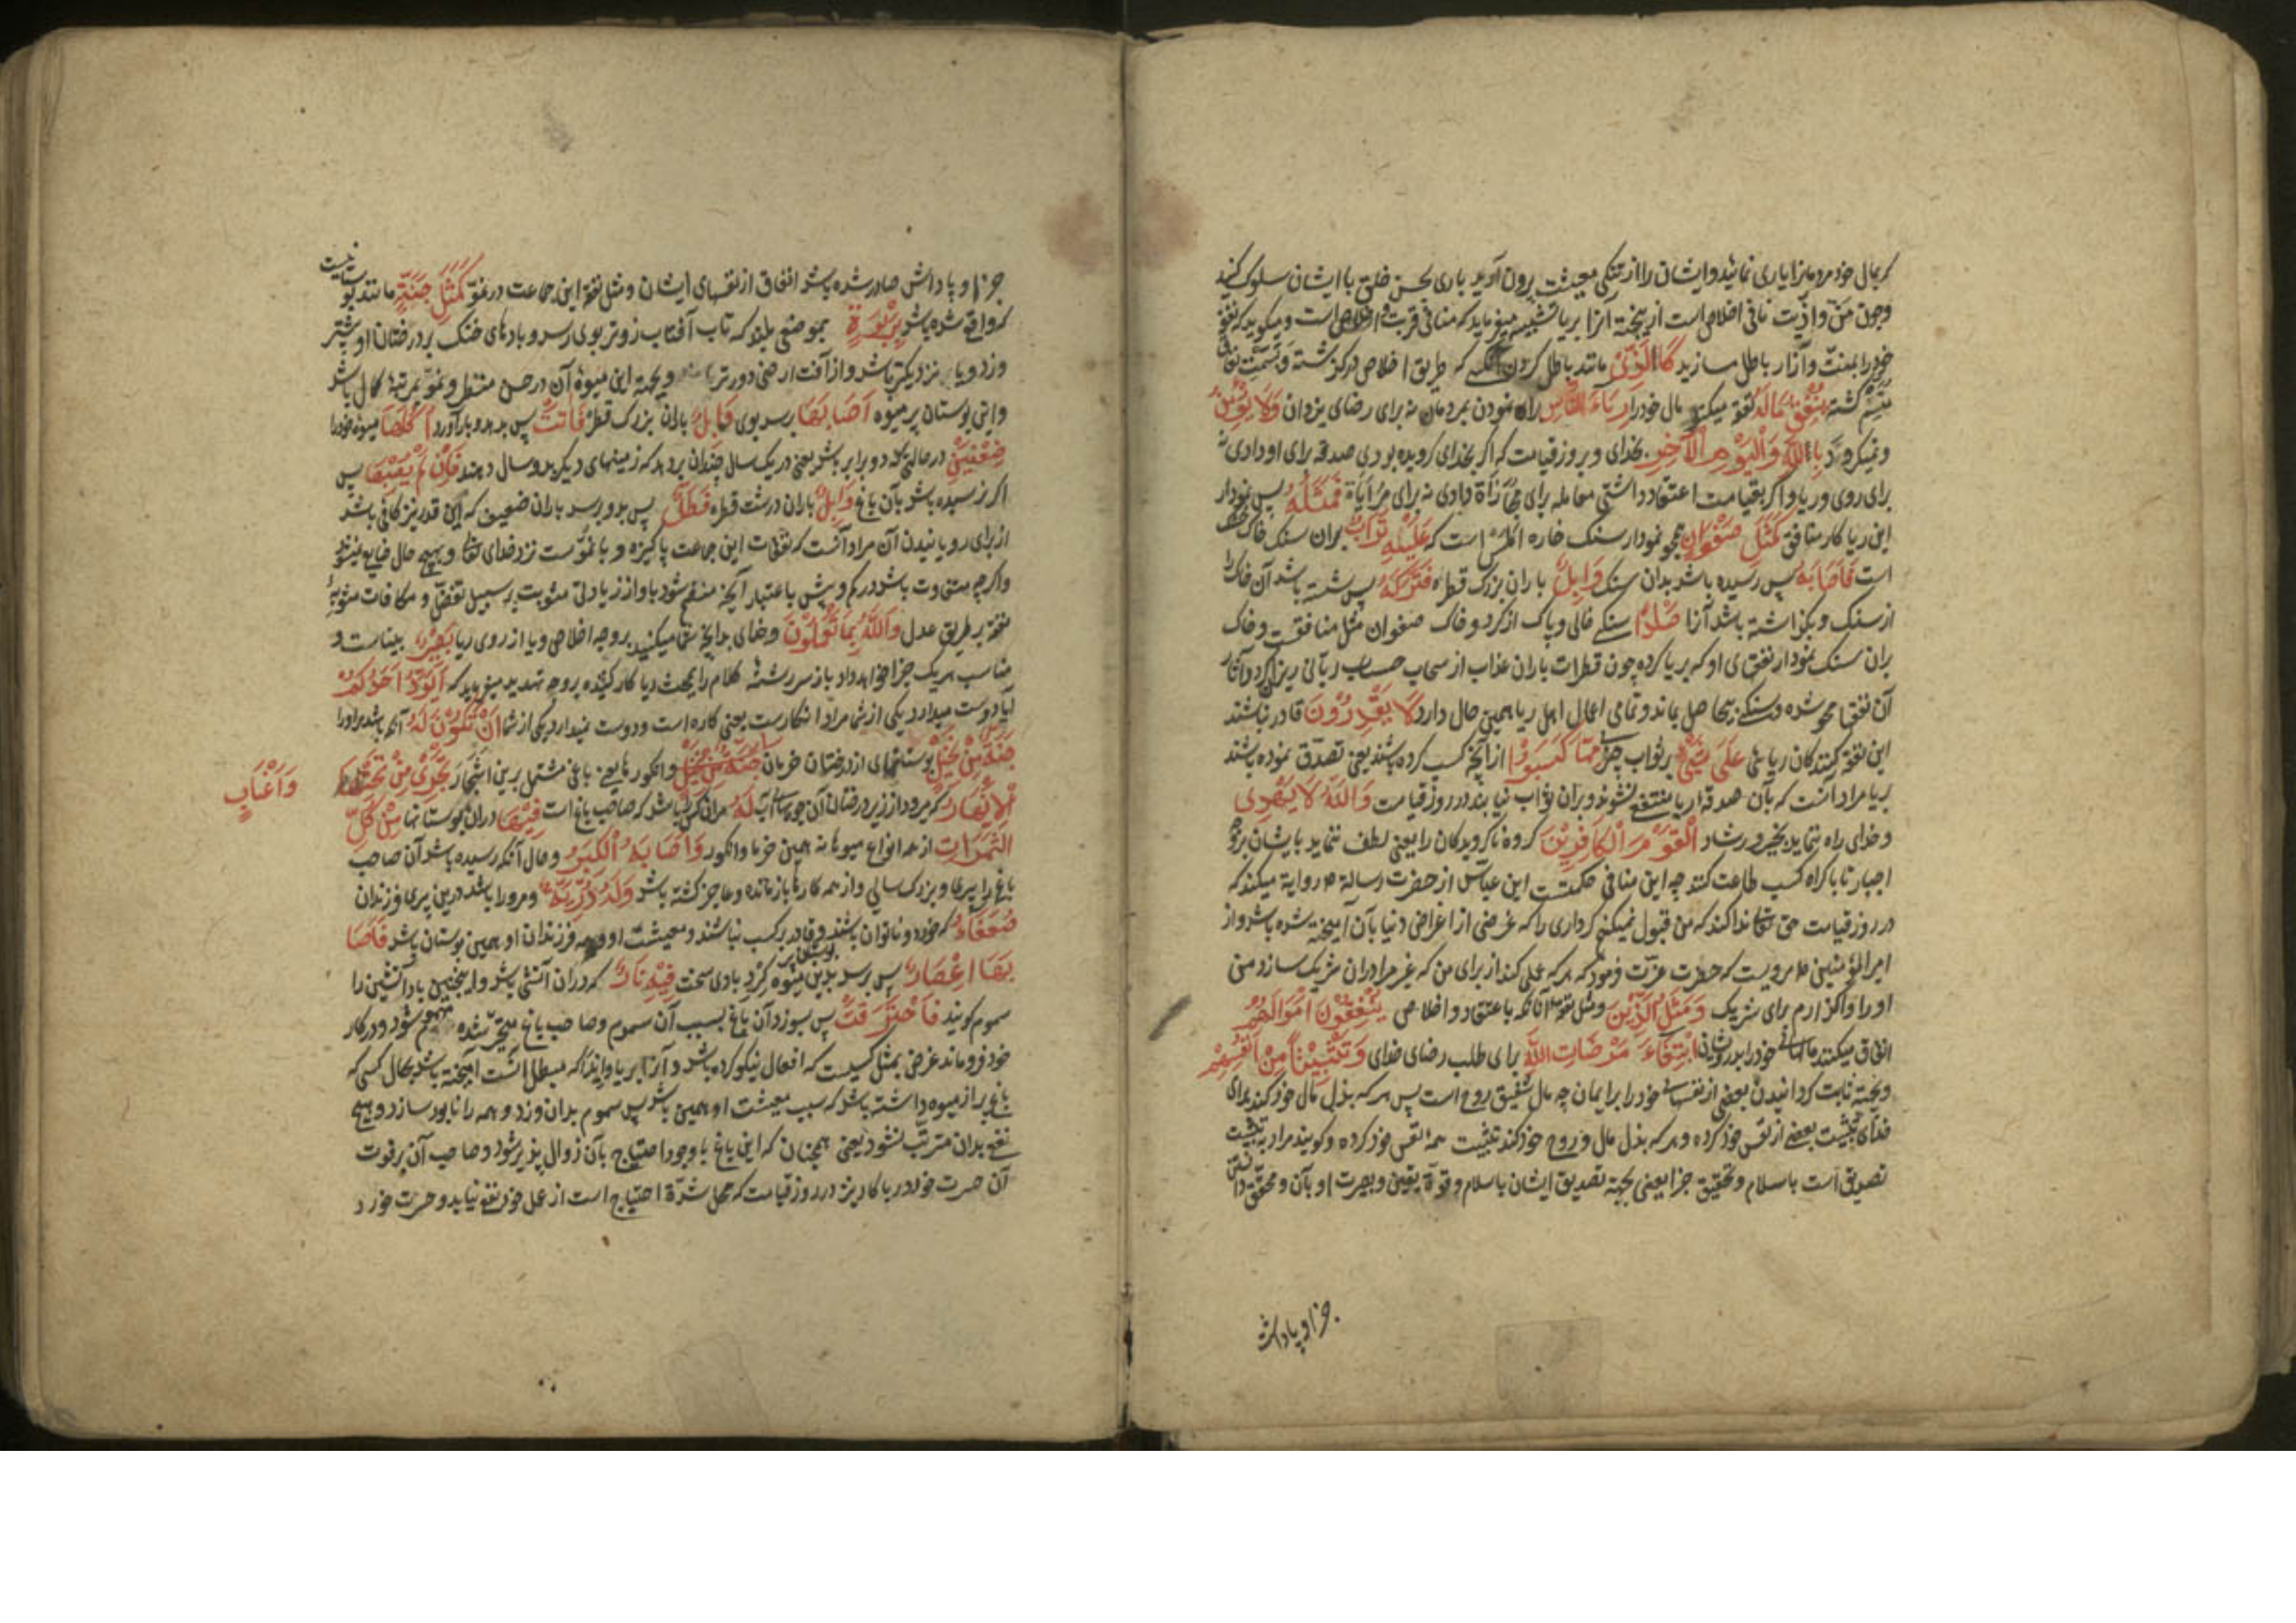 که بمال خود مردمانرا یاری نمائید و ایشان را از تنکی معیشت برون آورید باری بحسن خلق با ایشان سلوک کنید
و چون من و اذیت نافی اخلاص است از نجهة آنرا بریا تشبیه میفرماید که منافی قربت و اخلاص است و میکوید که نفقهٔ
خود را بمنت و آزار باطل سازید کَالَّذِی مانند باطل کردن کسی که طریق اخلاص درکذشته و بسمت نفاق
متسم کشته یُنْفِقُ مَالَهُ نفقه میکند مال خود را رِئَاءَ النَّاسِ براه نمودن بمردمان نه برای رضای یزدان وَلَا یُؤْمِنُ
و نمیکرود بِاللّٰهِ وَالْیَوْمِ الْآخِرِ بخدای و بروز قیامت که اکر بخدای کرویده بودی صدقه برای او دادی نه
برای روی و ریا و اکر بقیامت اعتقاد داشتی معامله برای مجازاة کردی نه برای مراياة فَمَثَلُهُ پس نمودار
این ریاکار منافق کَمَثَلِ صَفْوَانٍ همچو نمودار سنک خاره املس است که عَلَیْهِ تُرَابٌ بران سنک خاک خشک
است فَاَصَابَهُ پس رسیده باشد بدان سنک وَابِلٌ باران بزرک قطره فَتَرَکَهُ پس شسته باشد آن خاک را
از سنک و بکذاشته باشد آنرا صَلْدًا سنکی خالی و پاک از کرد و خاک صفوان مثل منافقست و خاک
بران سنک نمودار نفقهای او که بریا کرده چون قطرات باران عذاب از سحاب حساب ربانی ریزان کردد آثار
آن نفقها محو شده و سنکی بیحاصل بماند و تمامی اعمال اهل ریا همین حال دارد لَا یَقْدِرُوْنَ قادر نباشند
این نفقه کنندکان ریائی عَلَی شَیْءٍ بر ثواب چیزی مِمَّا کَسَبُوْا از آنچه کسب کرده باشند یعنی تصدق نموده باشند
بریا مراد آنست که بآن صدقه ریا منتفع نشوند و بران ثواب نیابند در روز قیامت وَاللّٰهُ لَا یَهْدِی
و خدای راه ننماید بخیر و رشاد الْقَوْمَ الْکَافِرِیْنَ کروه ناکرویدکان را یعنی لطف ننماید بایشان بروجه
اجبار تا باکراه کسب طاعت کنند چه این منافی حکمتست ابن عباس از حضرت رسالة ص روایة میکند که
در روز قیامت حق تعالی ندا کند که من قبول نمیکنم کرداری را که غرضی از اغراض دنیا بآن آمیخته شده باشد و از
امیر المؤمنین ع مرویست که حضرت عزت فرمود که هر که عملی کند از برای من که غیر مرا دران شریک سازد من
او را واکذارم برای شریک وَمَثَلُ الَّذِیْنَ و مثل نفقهٔ آنانکه باعتقاد و اخلاص یُنْفِقُوْنَ اَمْوَالَهُمُ
انفاق میکنند مالهای خود را بدرویشان ابْتِغَاءَ مَرْضَاتِ اللّٰهِ برای طلب رضای خدای وَتَثْبِیْتًا مِنْ اَنْفُسِهِمْ
و بجهة ثابت کردانیدن بعضی از نفسهای خود را بر ایمان چه مال شقیق روح است پس هر که بذل مال خود کند برای
خدای تثبیت بعضی از نفس خود کرده و هر که بذل مال و روح خود کند تثبیت همهٔ نفس خود کرده و کویند مراد بتثبیت
تصدیق است باسلام و تحقیق جزا یعنی بجهة تصدیق ایشان باسلام و قوة یقین و بصیرت او بآن و محقق دانستن
جزا و پاداش
جزا و پاداش صادر شده باشد انفاق از نفسهای ایشان و مثل نفقهٔ این جماعت در نمو کَمَثَلِ جَنَّةٍ مانند بوستانیست
که واقع شده باشد بِرَبْوَةٍ بموضعی بلند که تاب آفتاب زودتر بوی رسد و بادهای خنک بر درختان او بیشتر
وزد و با نزدیکتر باشد و از آفت ارضی دورتر و بجهة این میوهٔ آن در حسن منظر و نمو بمرتبهٔ کمال باشد
و این بوستان پر میوه اَصَابَهَا برسد بوی وَابِلٌ باران بزرک قطره فَاٰتَتْ پس بدهد و بار آورد اُکُلَهَا میوهٔ خود را
ضِعْفَیْنِ در حالتیکه دو برابر باشد یعنی در یک سال چندان بردهد که زمینهای دیکر بدو سال دهند فَاِنْ لَمْ یُصِبْهَا پس
اکر نرسیده باشد بآن باغ وَابِلٌ باران درشت قطره فَطَلٌّ پس بدو برسد باران ضعیف که این قدر نیز کافی باشد
از برای رویانیدن آن مراد آنست که نفقات این جماعت پاکیزه و با نموست نزد خدای تعالی و بهیچ حال ضایع نمیشود
و اکرچه متفاوت باشد در کم و بیش باعتبار آنچه منضم شود باو از زیادتی مثوبت بر سبیل تفضل و مکافات مثوبهٔ
نفقه بطریق عدل وَاللّٰهُ بِمَا تَعْمَلُوْنَ و خدای بدانچه شما میکنید بروجه اخلاص و یا از روی ریا بَصِیْرٌ بیناست و
مناسب هر یک جزا خواهد داد باز سر رشتهٔ کلام را بمبحث ریا کار کشیده بروجه تهدید میفرماید که اَیَوَدُّ اَحَدُکُمْ
آیا دوست میدارد یکی از شما مراد انکارست یعنی کاره است و دوست نمیدارد یکی از شما اَنْ تَکُوْنَ لَهُ آنکه باشد مر او را
جَنَّةٌ مِنْ نَخِیْلٍ بوستانهای از درختان خرمان جَنَّةٌ مِنْ نَخِیْلٍ و انکورها یعنی باغی مشتمل برین اشجار تَجْرِی مِنْ تَحْتِهَا
وَاَعْنَابٍ
الْاَنْهَارُ که میرود از زیر درختان آن جویهای آب لَهُ مران کس باشد که صاحب باغ است فِیْهَا دران بوستانها مِنْ کُلِّ
الثَّمَرَاتِ از همه انواع میوها نه همین خرما و انکور وَاَصَابَهُ الْکِبَرُ و حال آنکه رسیده باشد آن صاحب
باغ را پیری و بزرک سالی و از همه کارها بازمانده و عاجز کشته باشد وَلَهُ ذُرِّیَّةٌ و مرو را باشد درین پیری فرزندان
ضُعَفَاءُ که خورد و ناتوان باشند و قادر بر کسب نباشند و معیشت او و همه فرزندان او همین بوستان باشد فَاَصَا
بَهَا اِعْصَارٌ پس برسد بدین بوستان پر میوه کردبادی سخت فِیْهِ نَارٌ که دران آتشی باشد و اینچنین باد آتشین را
سموم کویند فَاحْتَرَقَتْ پس بسوزد آن باغ بسبب آن سموم و صاحب باغ متحیر شده مهموم شود و در کار
خود فروماند غرض تمثیل کسیست که افعال نیکو کرده باشد و آنرا بریا و ایذا که مبطل آنست آمیخته باشد بحال کسی که
باغ پر از میوه داشته باشد که سبب معیشت او همین باشد پس سموم بدان وزد و همه را نابود سازد و هیچ
نفع بدان مترتب نشود یعنی همچنان که این باغ با وجود احتیاج بآن زوال پذیر شود و صاحب آن بر فوت
آن حسرت خورد ریاکار نیز در روز قیامت که محل شدة احتیاج است از عمل خود نفع نیابد و حسرت خورد